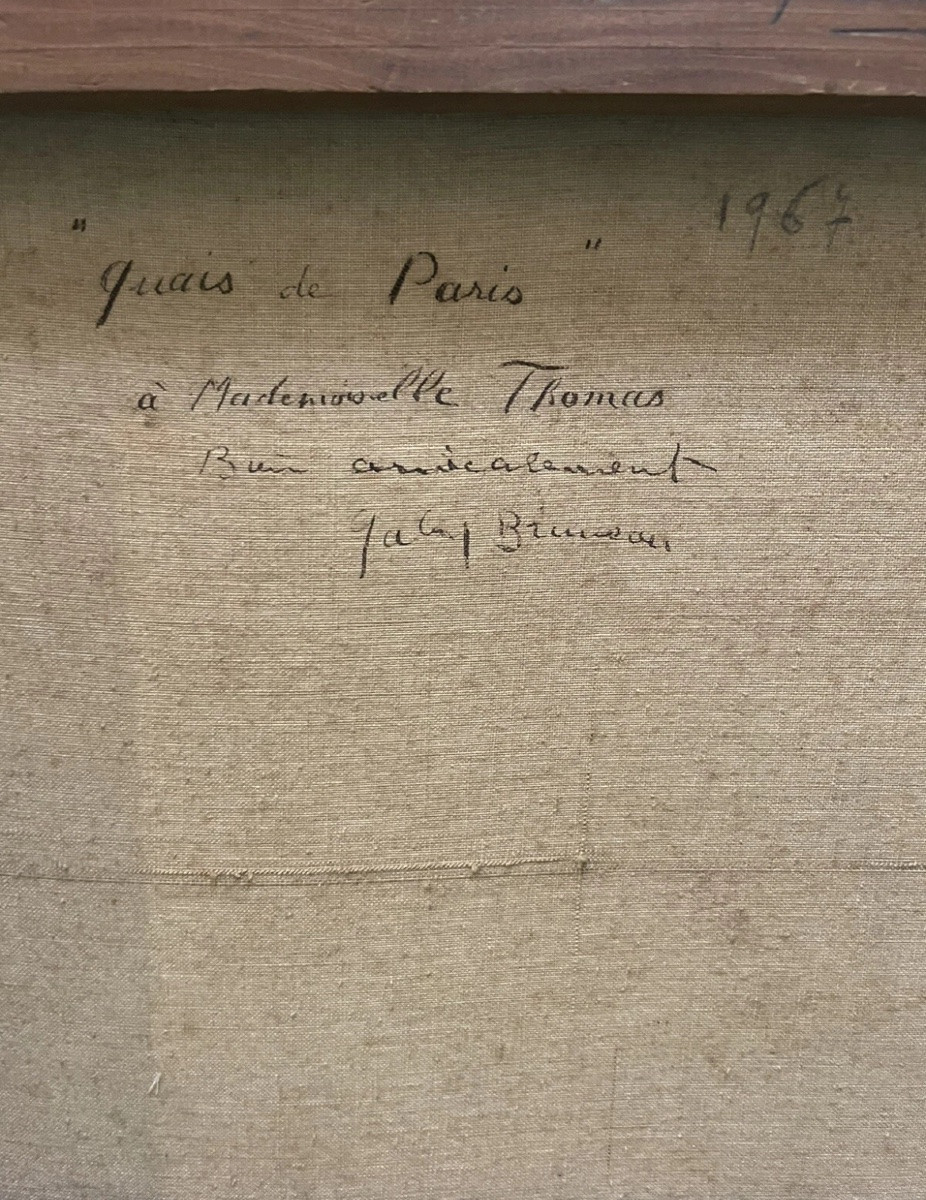 1967
"Quais de Paris"
à Mademoiselle Thomas
Bien amicalement
Gaby Bruneau